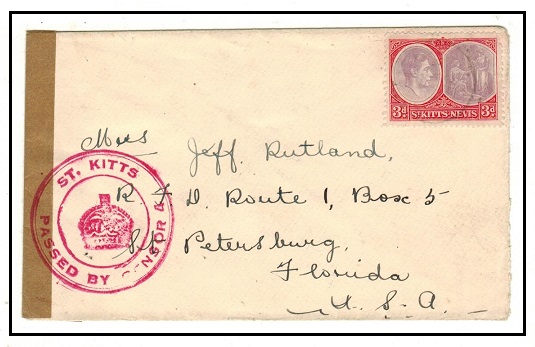 3d ST KITTS-NEVIS 3d
Mrs Jeff. Rutland,
R F D. Route 1, Box 5
St Petersburg,
Florida
U. S. A.
ST. KITTS
PASSED BY CENSOR 4